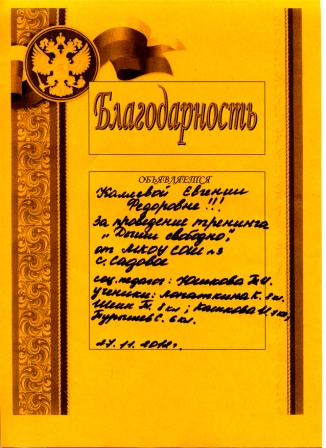 Благодарность
ОБЪЯВЛЯЕТСЯ
Евгении
Федоровне!!!
за проведение тренинга
"Дыши свободно",
от МКОУ СОШ №3
с. Садовое
соц. педагог: Юшкова Т.И.
ученики: Лопаткина К. 8 кл.
Шенк Т. 8 кл; Кашкова И. 7 кл,
Бурышев С. 6 кл.
27.11.2012г.